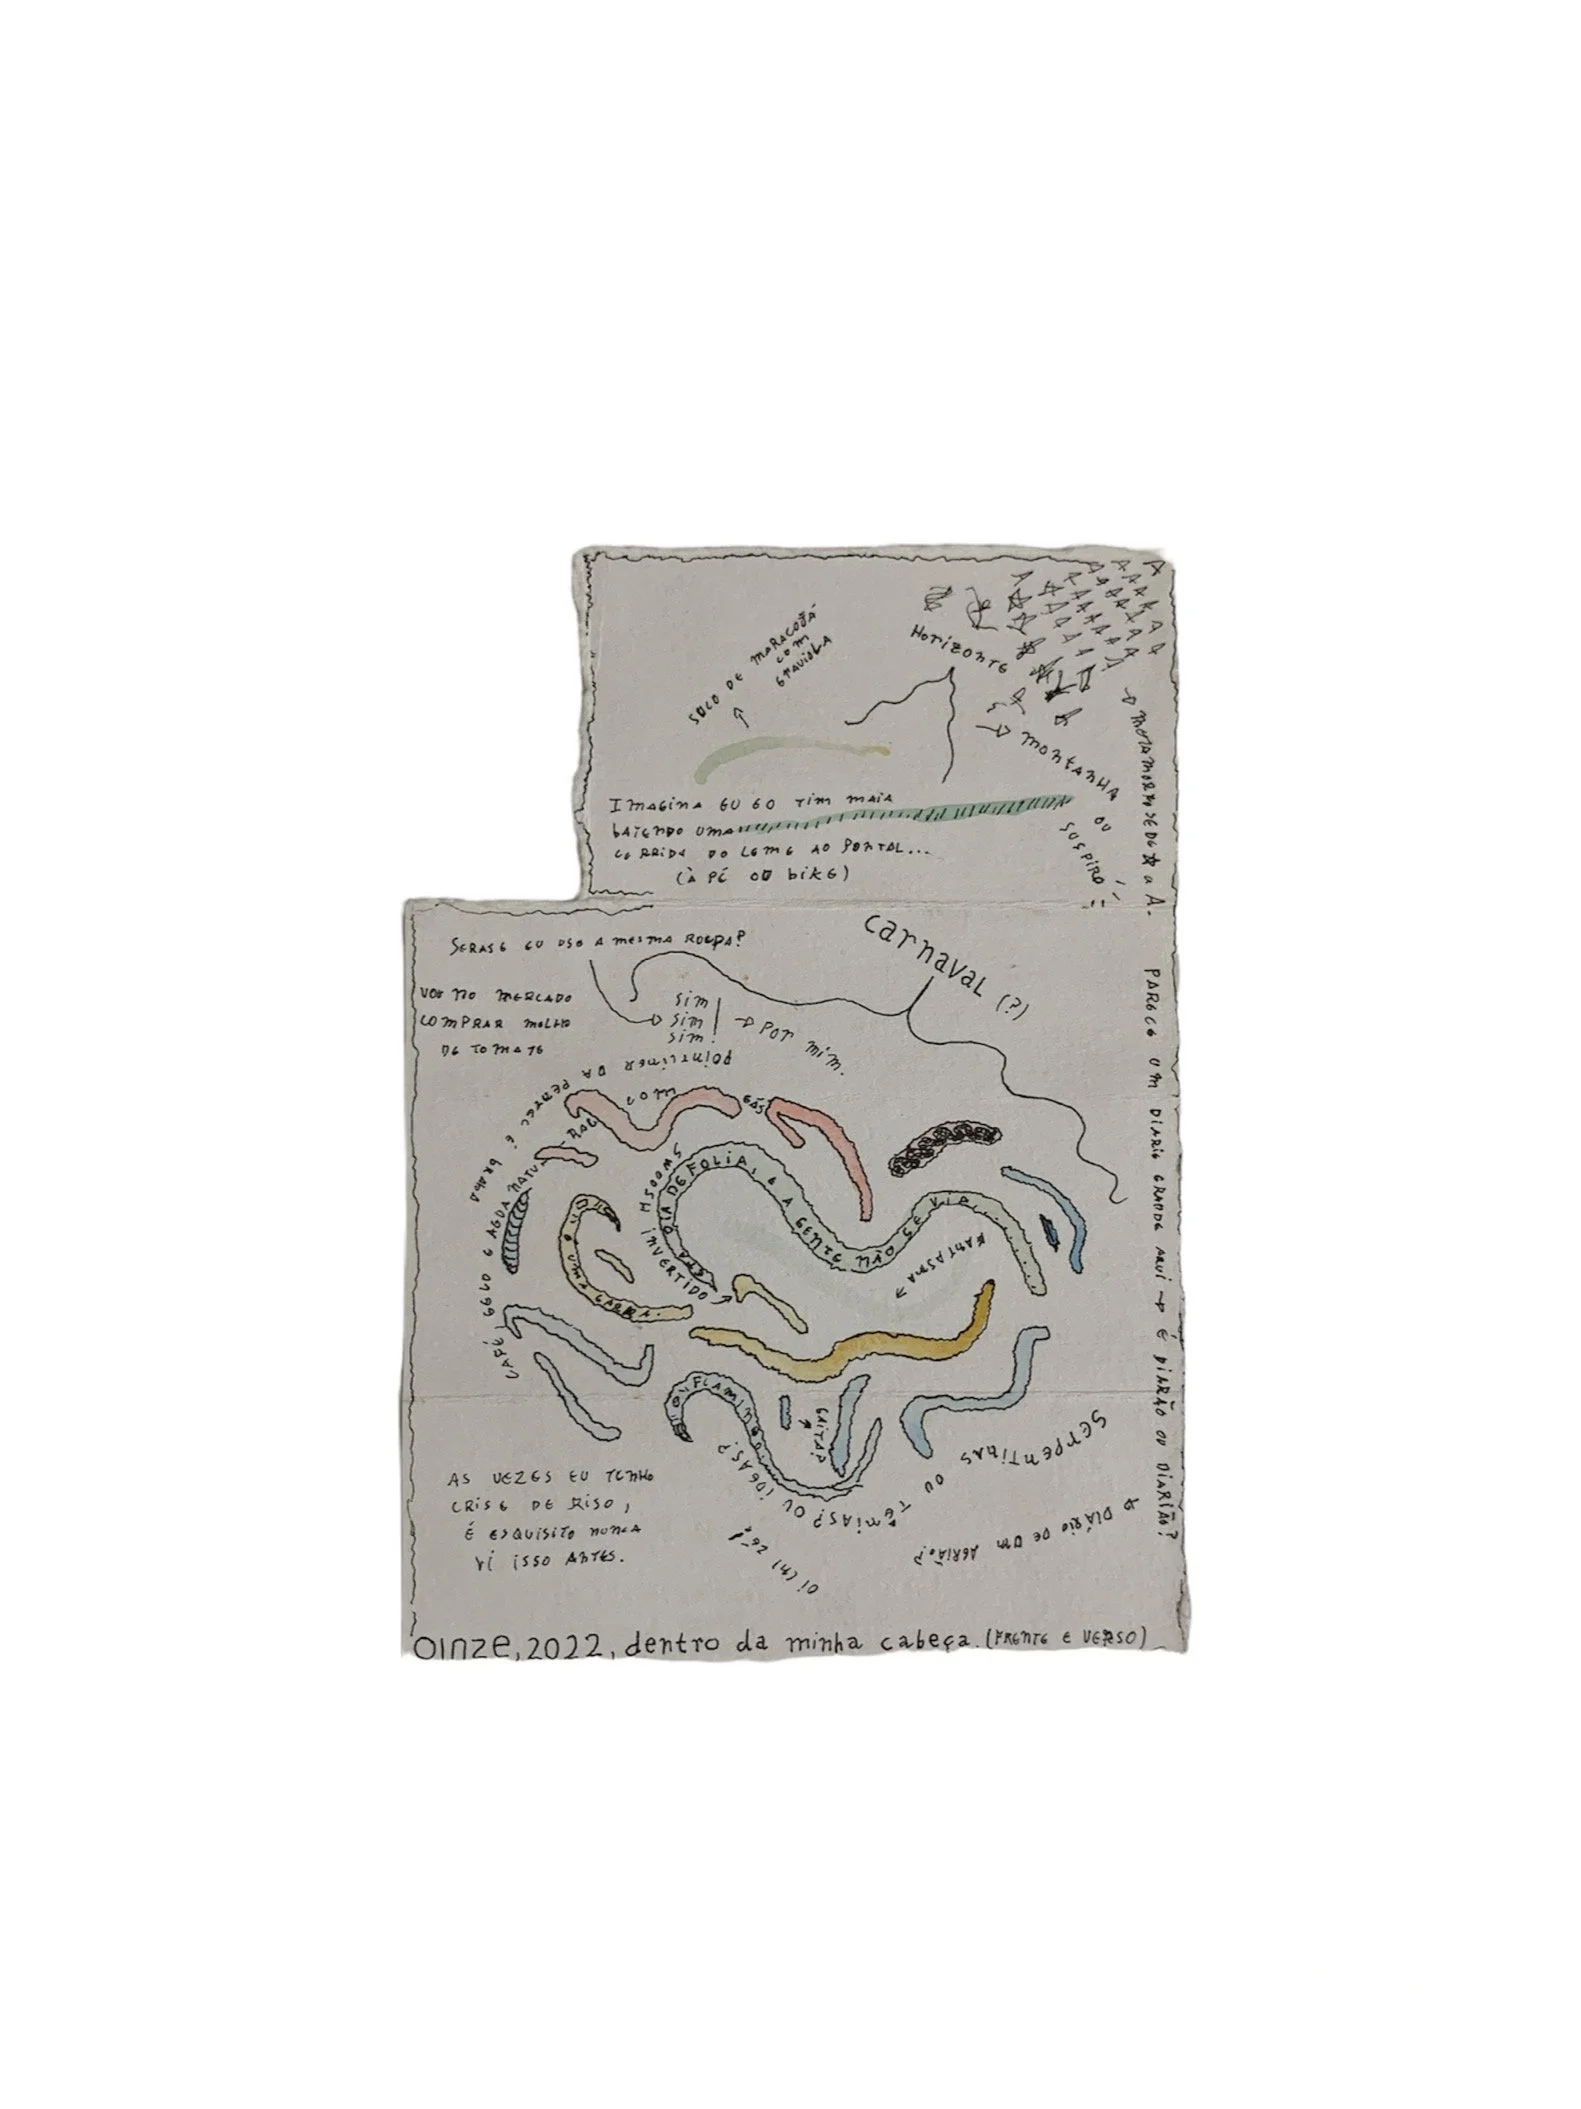 SUCO DE MARACUJÁ
COM
GRAVIOLA
Horizonte
MONTANHA OU
SUSPIRO
METAMORFOSE DE ☆ a A.
IMAGINA EU E O TIM MAIA
BATENDO UMA
CORRIDA DO LEME AO PONTAL...
(À PÉ OU BIKE)
SERASE EU USO A MESMA ROUPA?
carnaval (?)
VOU NO MERCADO
COMPRAR MOLHO
DE TOMATE
SIM
SIM
SIM!
POR MIM.
POINTLINER DA PENTEL É BRABA
CAFÉ, GELO E AGUA NATURAL
COM
GÁS
SWOOSH
INVERTIDO
DIA DE FOLIA, E A GENTE NÃO SE VIA...
FANTASMA
OU UMA GARRA.
OU FLAMINGO
GAITA?
SERPENTINAS OU TÊNIAS? OU IDEAS?
OI (N) ZE
DIÁRIO DE UM
PARECE UM DIARIO GRANDE AQUI → É DIARÃO OU DIARIÃO?
AS VEZES EU TENHO
CRISE DE RISO,
É ESQUISITO NUNCA
VI ISSO ANTES.
OINZE, 2022, dentro da minha cabeça. (FRENTE E VERSO)